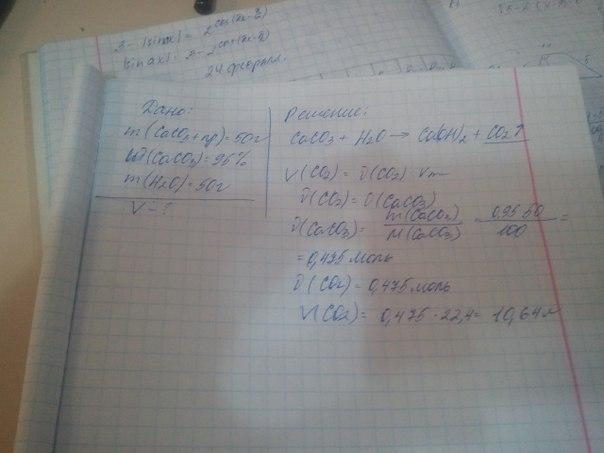 3 - |sin ax| = 2
|sin ax| = 3 - 2
24 февраля.
Дано:
m(CaCO₃+пр)=50г
W(CaCO₃)=95%
m(H₂O)=50г
V-?
Решение:
CaCO₃ + H₂O → Ca(OH)₂ + CO₂↑
V(CO₂) = ν(CO₂) Vm
ν(CO₂) = ν(CaCO₃)
ν(CaCO₃) = m(CaCO₃)/M(CaCO₃) = 0,95·50/100 =
= 0,475 моль
ν(CO₂) = 0,475 моль
V(CO₂) = 0,475 · 22,4 = 10,64 л